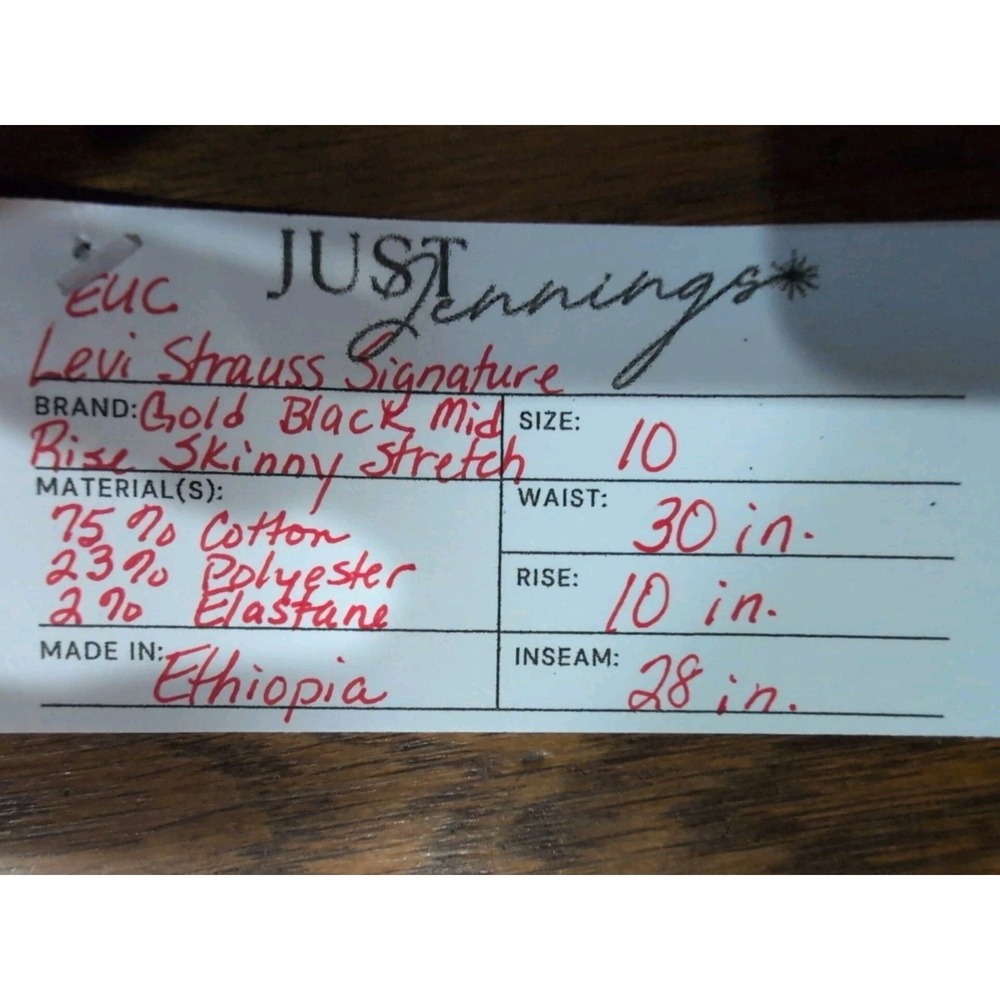 JUST Jennings
EUC
Levi Strauss Signature
BRAND: Gold Black Mid
Rise Skinny Stretch
SIZE: 10
MATERIAL(S):
75% Cotton
23% Polyester
2% Elastane
WAIST: 30 in.
RISE: 10 in.
MADE IN: Ethiopia
INSEAM: 28 in.